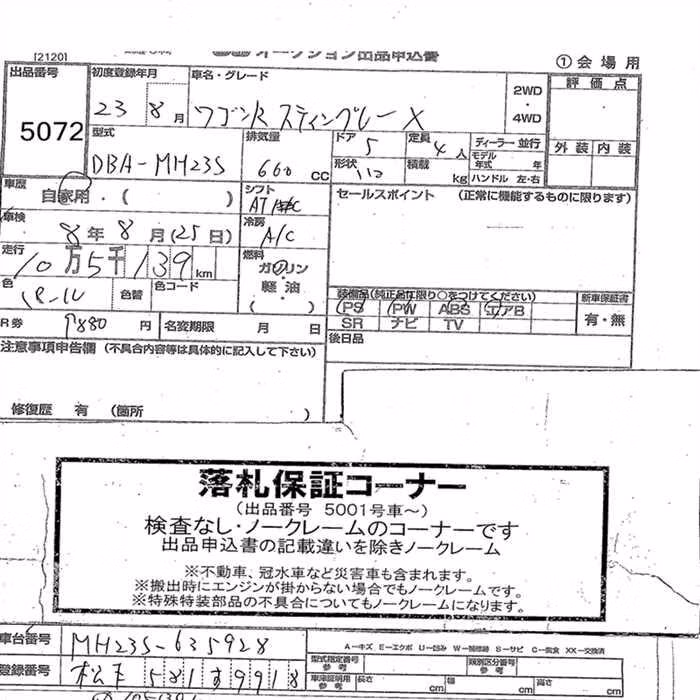 [2120] オークション出品申込書 ①会場用
出品番号 初度登録年月 車名・グレード 2WD・4WD 評価点
5072 23 8月 ワゴンR スティングレー X
型式 排気量 ドア 5 定員 4人 ディーラー 並行 外装 内装
DBA-MH23S 660 CC 形状 積載 kg モデル年式 年 ハンドル 左・右
車歴 自家用・( ) シフト AT セールスポイント (正常に機能するものに限ります)
車検 8年8月(25日) 冷房 A/C
走行 10万5千139km 燃料 ガソリン・軽油 ( )
色 パール 色替 色コード 装備品(純正品に限り○をつけてください) 新車保証書
PS PW ABS エアB 有・無
R券 円 名変期限 月 日 SR ナビ TV
注意事項申告欄 (不具合内容等は具体的に記入して下さい) 後日品
修復歴 有 (箇所 )
落札保証コーナー
(出品番号 5001号車〜)
検査なし・ノークレームのコーナーです
出品申込書の記載違いを除きノークレーム
※不動車、冠水車など災害車も含まれます。
※搬出時にエンジンが掛からない場合でもノークレームです。
※特殊特装部品の不具合についてもノークレームになります。
車台番号 MH23S-635928 A-キズ E-エクボ U-凹み W-補修跡 S-サビ C-腐食 XX-交換済
登録番号 581す9918 型式指定番号 参考 類別区分番号 参考
車庫証明用 参考 長さ cm 幅 cm 高さ cm